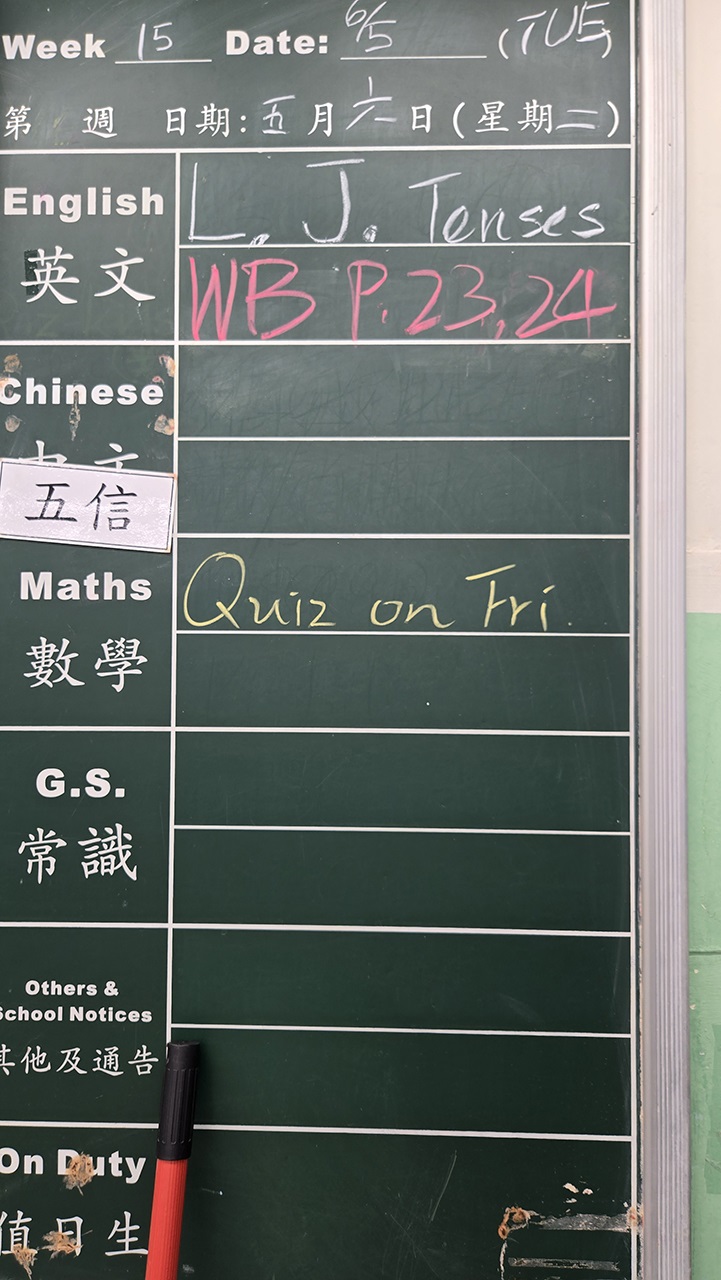 Week 15 Date: 6/5 (TUE)
第 週 日期: 五月六日 (星期二)
English L. J. Tenses
英文 WB P. 23, 24
Chinese
中文
五信
Maths Quiz on Fri.
數學
G.S.
常識
Others &
School Notices
其他及通告
On Duty
值日生